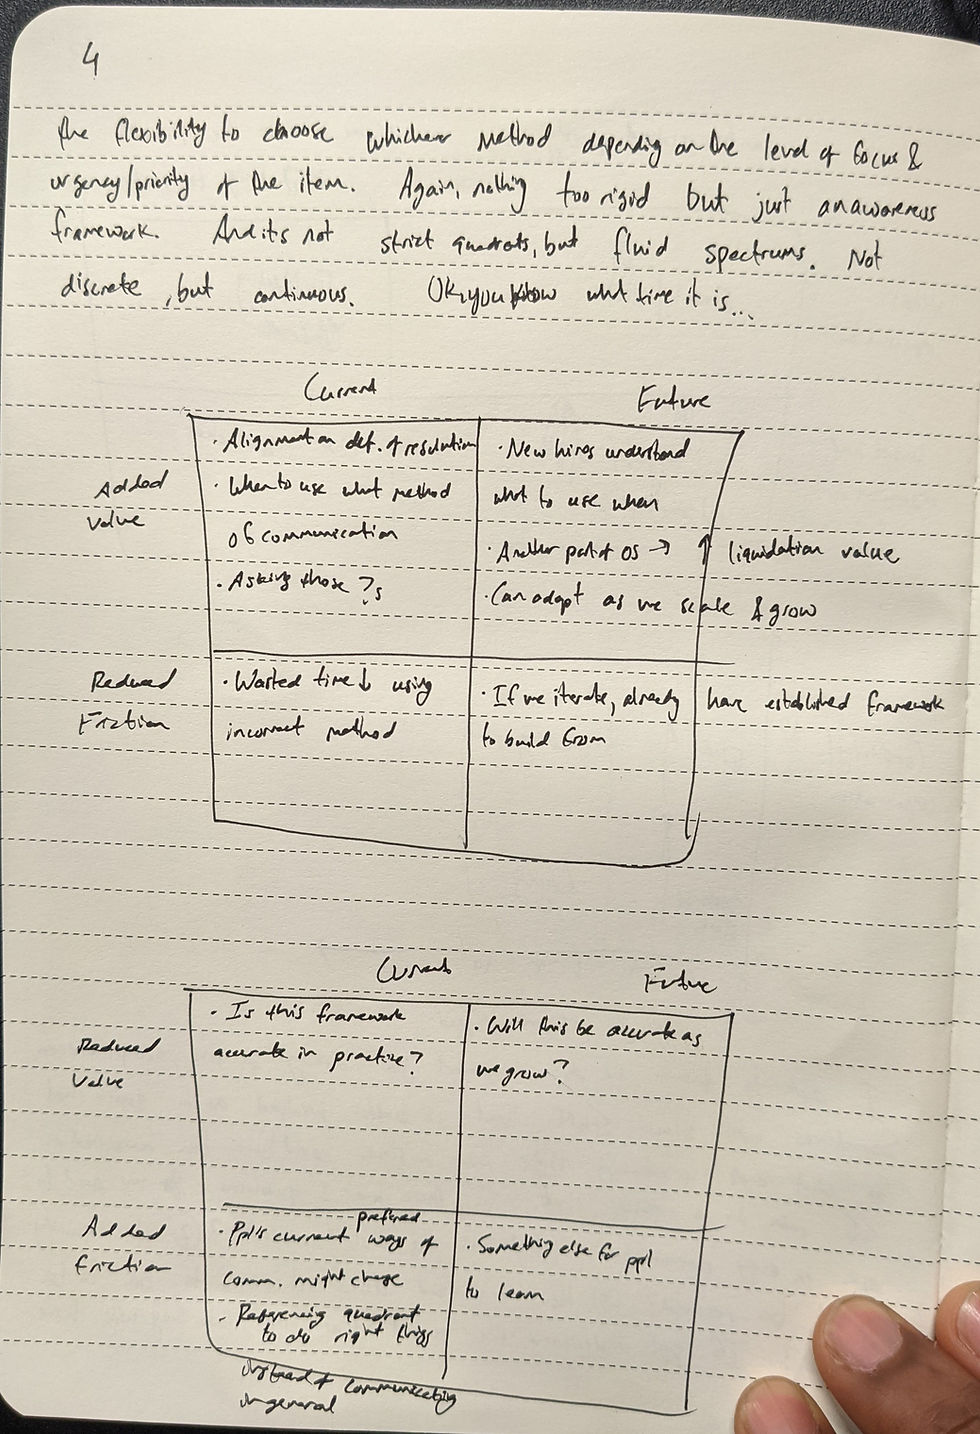 4
the flexibility to choose whichever method depending on the level of focus &
urgency/priority of the item. Again, nothing too rigid but just an awareness
framework. And its not strict quadrats, but fluid spectrums. Not
discrete, but continuous. OK, you know what time it is...
Current Future
Added
Value
· Alignment on def. of resolution
· When to use what method
of communication
· Asking those ?s
· New hires understand
what to use when
· Another part of OS → ↑ liquidation value
· Can adapt as we scale & grow
Reduced
Friction
· Wasted time ↓ using
incorrect method
· If we iterate, already have established framework
to build from
Current Future
Reduced
Value
· Is this framework
accurate in practice?
· Will this be accurate as
we grow?
Added
Friction
· Ppl's current preferred ways of
comm. might change
- Referencing quadrant
to do right things
instead of communicating
in general
· Something else for ppl
to learn